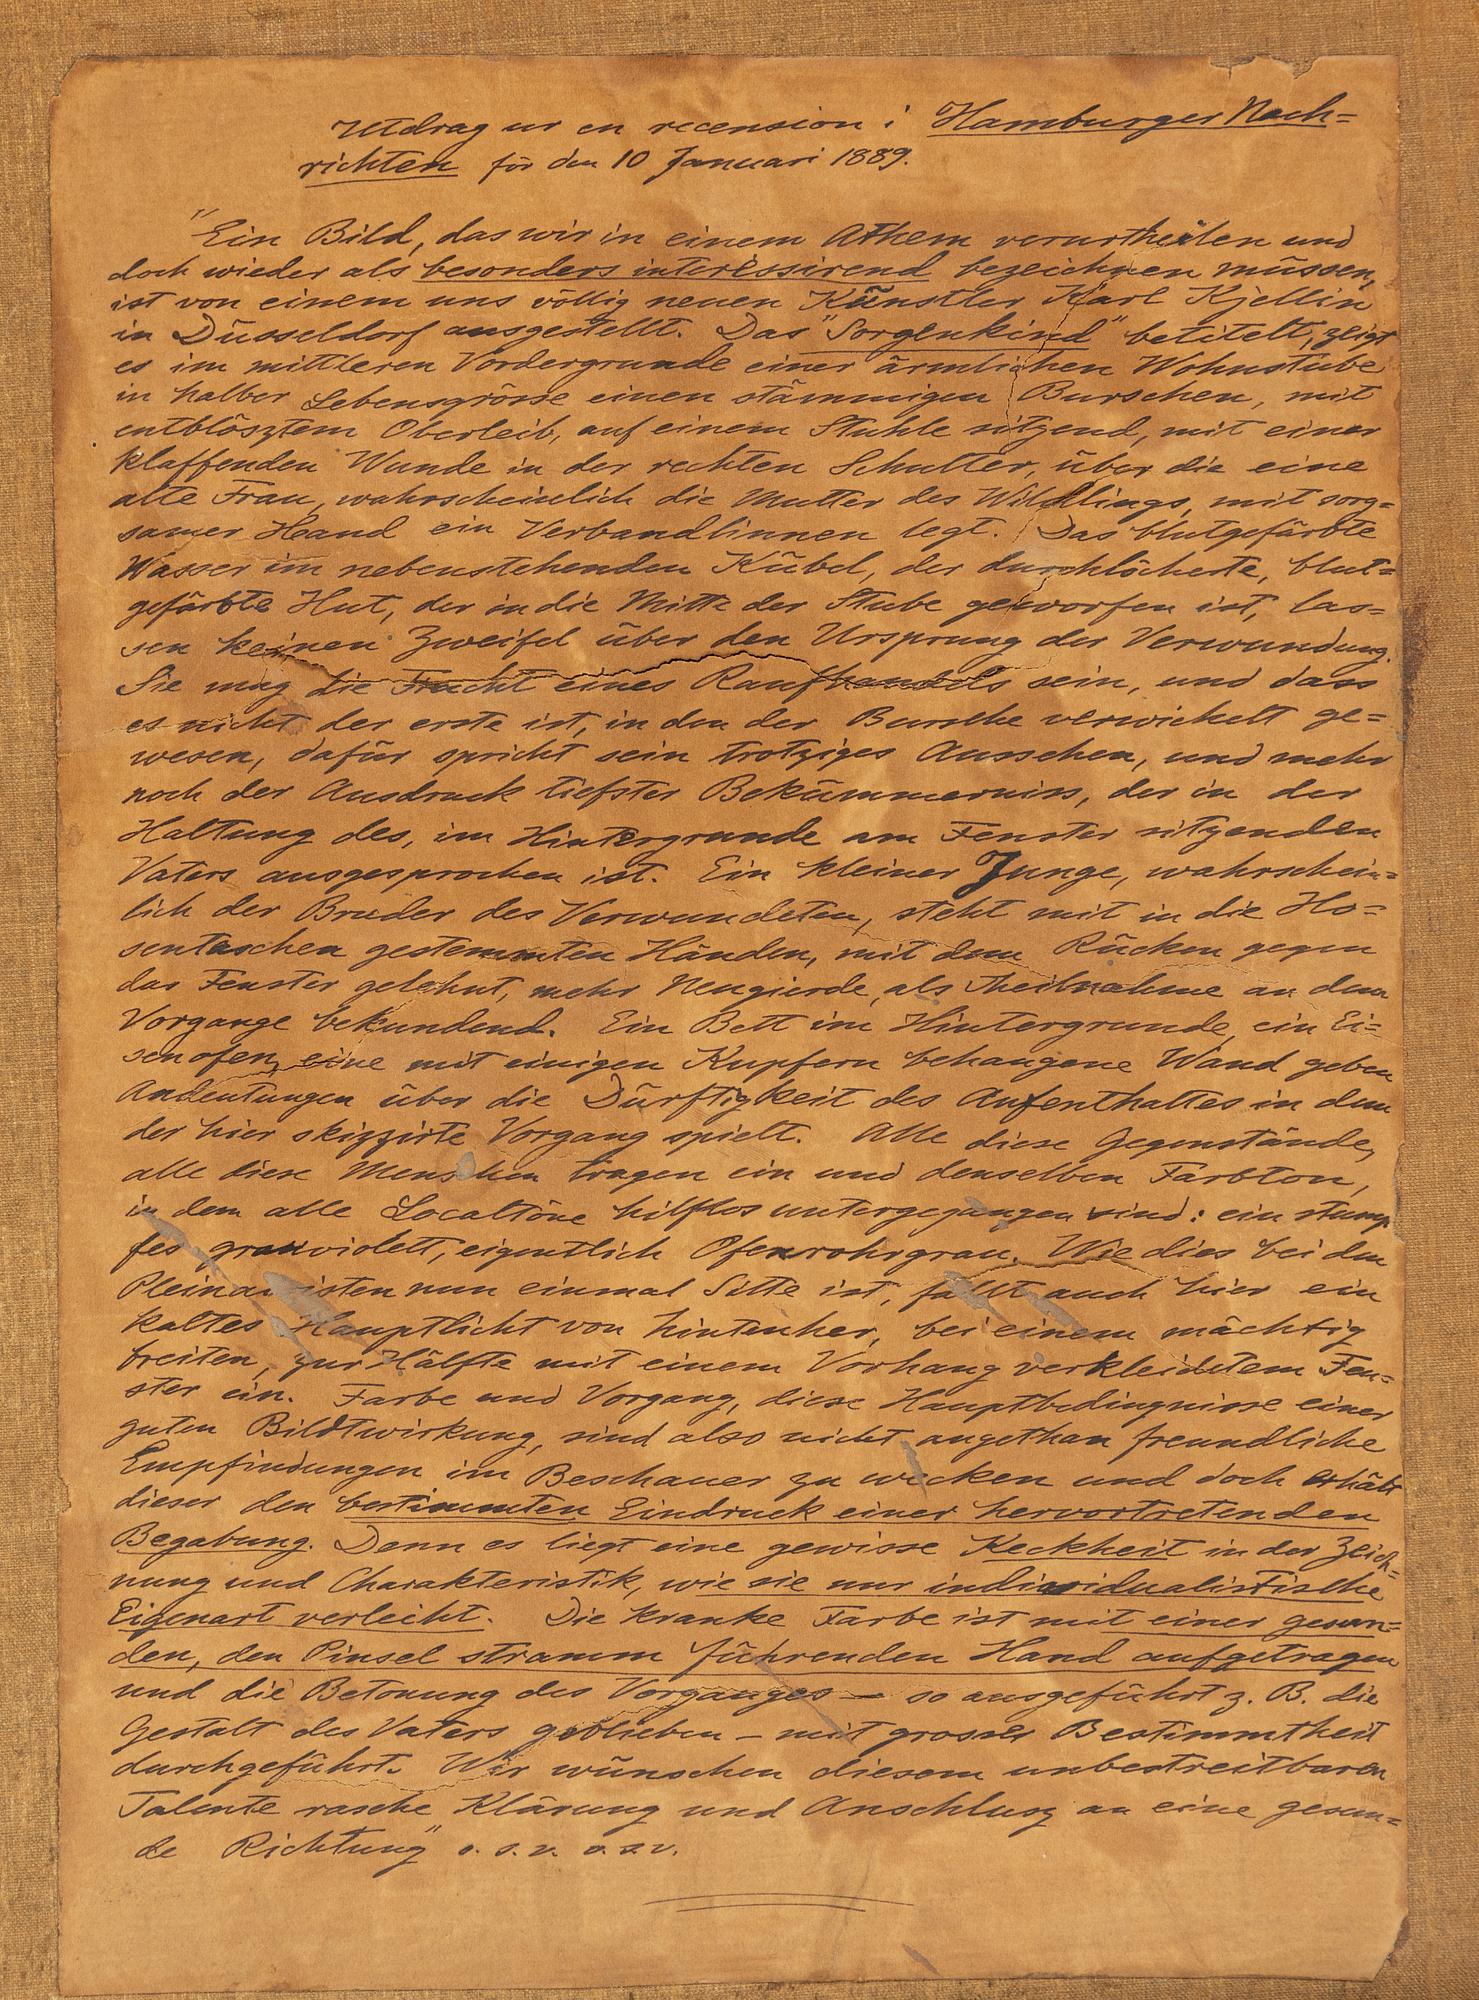 Utdrag ur en recension i Hamburger Nach=
richten för den 10 Januari 1889.
"Ein Bild, das wir in einem Athem verurtheilen und
doch wieder als besonders interessirend bezeichnen müssen,
ist von einem uns völlig neuen Künstler Karl Kjellin
in Düsseldorf ausgestellt. Das "Sorgenkind" betitelt, zeigt
es im mittleren Vordergrunde einer ärmlichen Wohnstube
in halber Lebensgrösse einen stämmigen Burschen, mit
entblösztem Oberleib, auf einem Stuhle sitzend, mit einer
klaffenden Wunde in der rechten Schulter, über die eine
alte Frau, wahrscheinlich die Mutter des Wildlings, mit sorg=
samer Hand ein Verbandlinnen legt. Das blutgefärbte
Wasser im nebenstehenden Kübel, der durchlöcherte, blut=
gefärbte Hut, der in die Mitte der Stube geworfen ist, las=
sen keinen Zweifel über den Ursprung der Verwundung.
Sie mag die Frucht eines Raufhandels sein, und dass
es nicht der erste ist, in den der Bursche verwickelt ge=
wesen, dafür spricht sein trotziges Aussehen, und mehr
noch der Ausdruck tiefster Bekümmerniss, der in der
Haltung des, im Hintergrunde am Fenster sitzenden
Vaters ausgesprochen ist. Ein kleiner Junge, wahrschein=
lich der Bruder des Verwundeten, steht mit in die Ho=
sentaschen gestemmten Händen, mit dem Rücken gegen
das Fenster gelehnt, mehr Neugierde, als Theilnahme an dem
Vorgange bekundend. Ein Bett im Hintergrunde, ein Ei=
senofen, eine mit einigen Kupfern behangene Wand geben
Andeutungen über die Dürftigkeit des Aufenthaltes in dem
der hier skizzirte Vorgang spielt. Alle diese Gegenstände,
alle diese Menschen tragen ein und denselben Farbton,
in dem alle Localtöne hilflos untergegangen sind: ein stump
fes grauviolett, eigentlich Ofenrohrgrau. Wie dies bei den
Pleinairisten nun einmal Sitte ist, fällt auch hier ein
kaltes Hauptlicht von hintenher, bei einem mächtig
breiten, zur Hälfte mit einem Vorhang verkleidetem Fen=
ster ein. Farbe und Vorgang, diese Hauptbedingnisse einer
guten Bildtwirkung, sind also nicht angethan freundliche
Empfindungen im Beschauer zu wecken und doch erhält
dieser den bestimmten Eindruck einer hervortretenden
Begabung. Denn es liegt eine gewisse Keckheit in der Zeich=
nung und Charakteristik, wie sie nur individualistische
Eigenart verleiht. Die kranke Farbe ist mit einer gesun=
den, den Pinsel stramm führenden Hand aufgetragen
und die Betonung des Vorganges — so ausgeführt z. B. die
Gestalt des Vaters geblieben — mit grosser Bestimmtheit
durchgeführt. Wir wünschen diesem unbestreitbaren
Talente rasche Klärung und Anschlusz an eine gesun=
de Richtung" o. s. v. o. s. v.